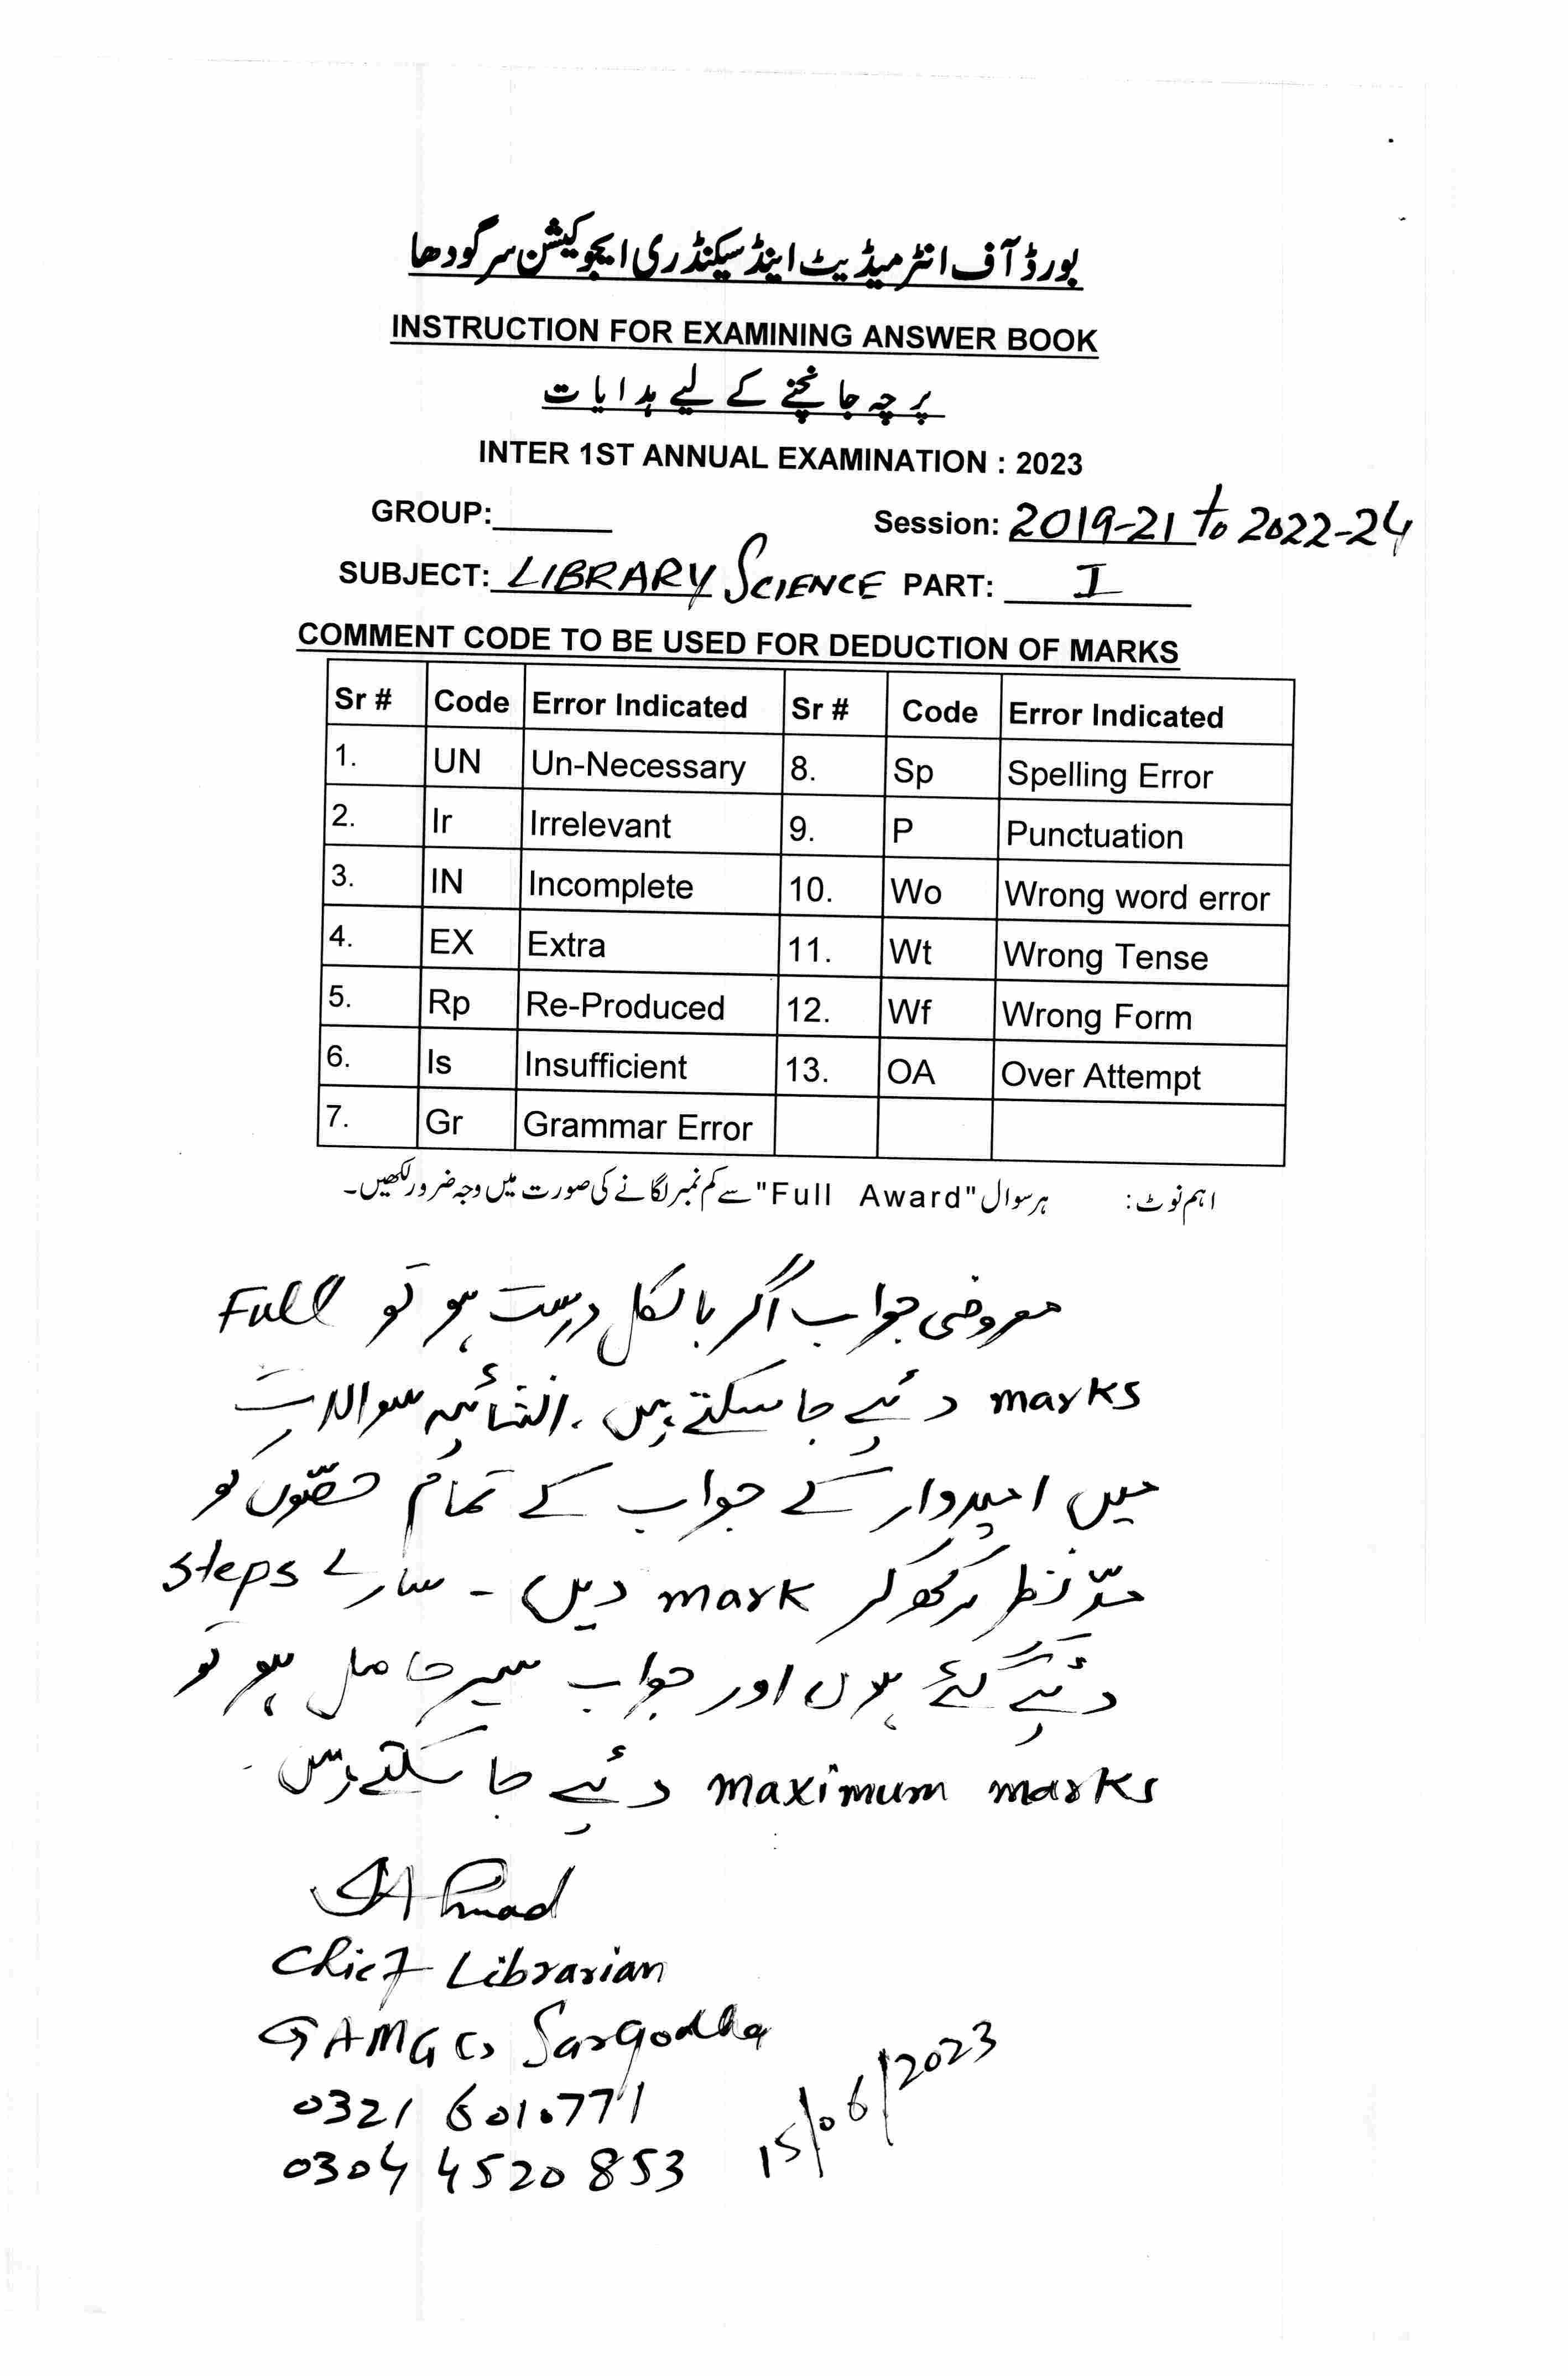 بورڈ آف انٹرمیڈیٹ اینڈ سیکنڈری ایجوکیشن سرگودھا
INSTRUCTION FOR EXAMINING ANSWER BOOK
پرچہ جانچنے کے لیے ہدایات
INTER 1ST ANNUAL EXAMINATION : 2023
GROUP:______ Session: 2019-21 to 2022-24
SUBJECT: LIBRARY SCIENCE PART: I
COMMENT CODE TO BE USED FOR DEDUCTION OF MARKS
Sr # Code Error Indicated Sr # Code Error Indicated
1. UN Un-Necessary 8. Sp Spelling Error
2. Ir Irrelevant 9. P Punctuation
3. IN Incomplete 10. Wo Wrong word error
4. EX Extra 11. Wt Wrong Tense
5. Rp Re-Produced 12. Wf Wrong Form
6. Is Insufficient 13. OA Over Attempt
7. Gr Grammar Error
اہم نوٹ: ہر سوال "Full Award" سے کم نمبر لگانے کی صورت میں وجہ ضرور لکھیں۔
معروضی جواب اگر بالکل درست ہو تو Full
marks دئیے جا سکتے ہیں۔ انشائیہ سوالات
میں امیدوار کے جواب کے تمام حصّوں کو
مدّ نظر رکھ کر mark دیں۔ سارے steps
دئیے گئے ہوں اور جواب سیر حاصل ہو تو
maximum marks دئیے جا سکتے ہیں۔
Ahmad
Chief Librarian
GAMG Sargodha
0321 6010771
0304 4520853
15/06/2023